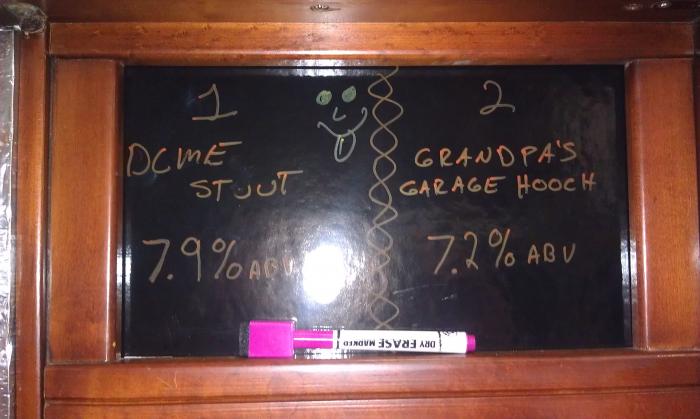 1
DCME
STOUT
7.9% ABV
2
GRANDPA'S
GARAGE HOOCH
7.2% ABV
DRY ERASE MARKER